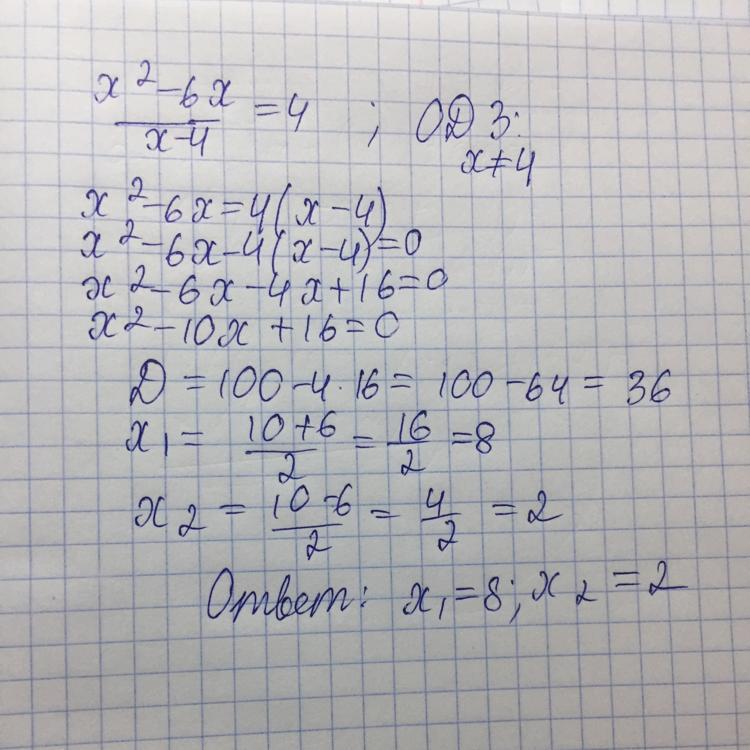 x²-6x/x-4 = 4 ; ОДЗ:
x≠4
x²-6x=4(x-4)
x²-6x-4(x-4)=0
x²-6x-4x+16=0
x²-10x+16=0
D=100-4·16=100-64=36
x₁=10+6/2=16/2=8
x₂=10-6/2=4/2=2
Ответ: x₁=8; x₂=2